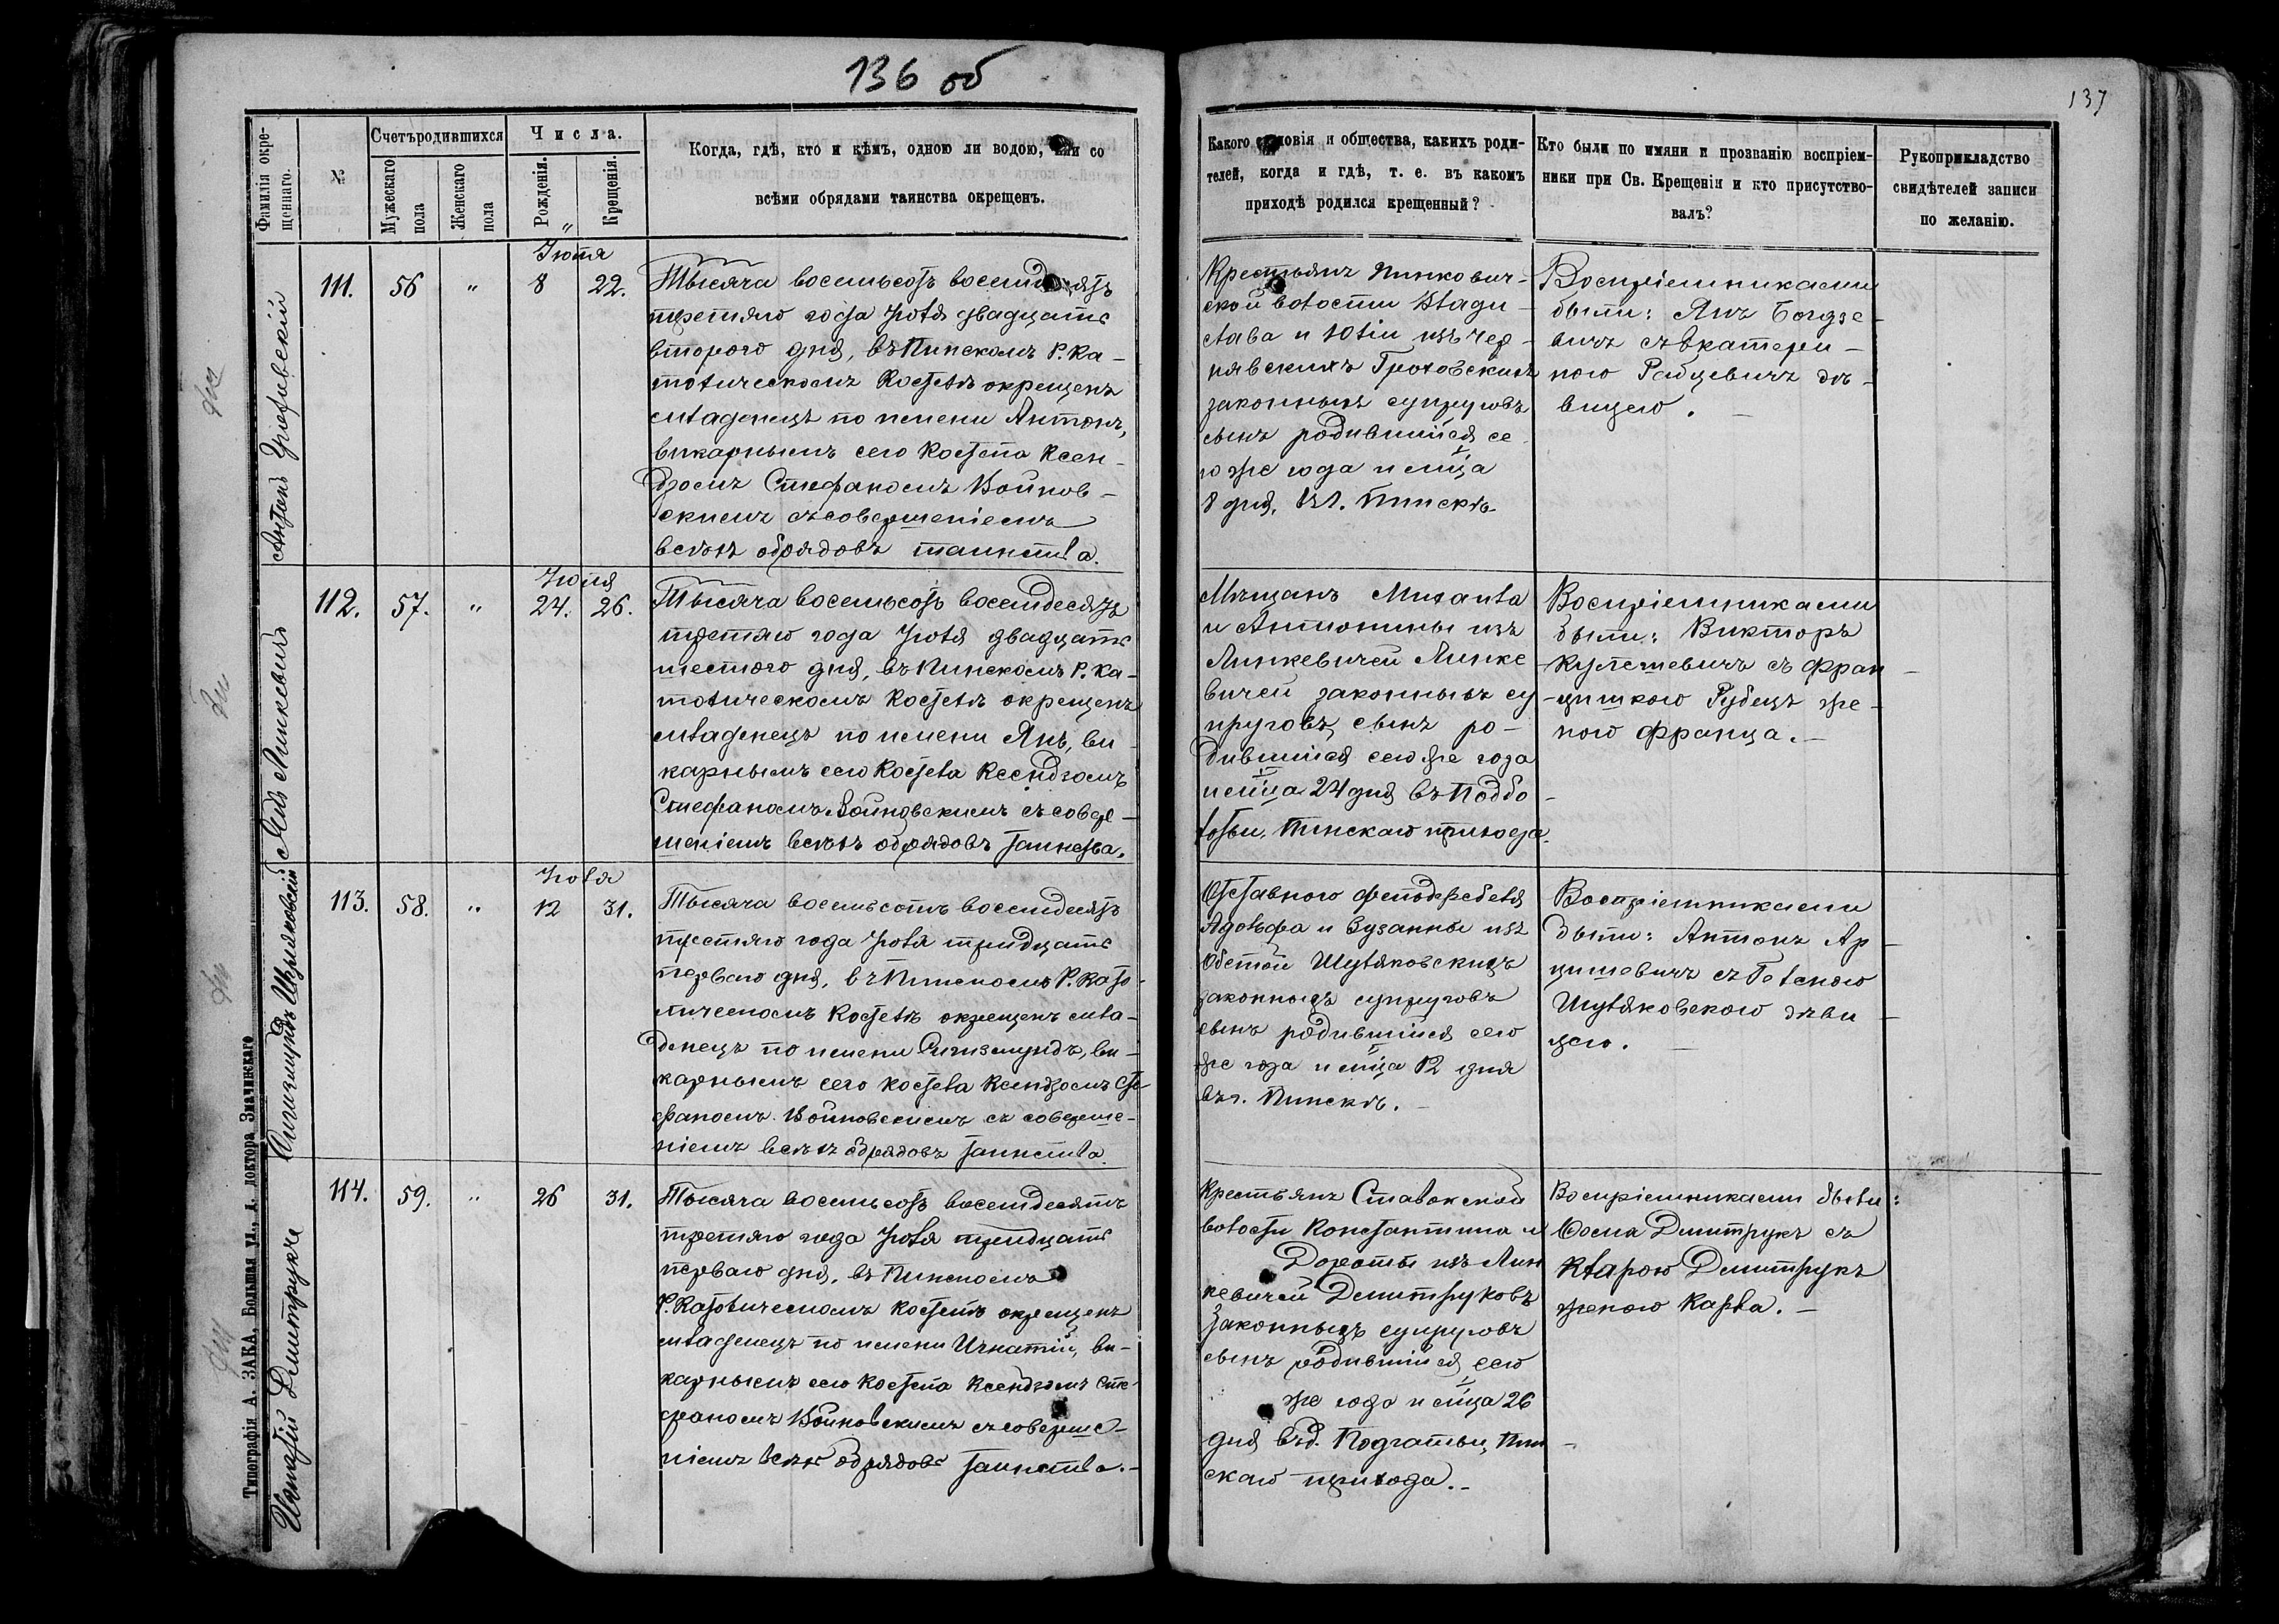 136 об
137
Фамилія окре-
щеннаго.
№
Счетъ родившихся
Мужескаго
пола
Женскаго
пола
Числа.
Рожденія.
Крещенія.
Когда, гдѣ, кто и кѣмъ, одною ли водою, или со
всѣми обрядами таинства окрещенъ.
Какого сословія и общества, какихъ роди-
телей, когда и гдѣ, т. е. въ какомъ
приходѣ родился крещенный?
Кто были по имяни и прозванію воспріем-
ники при Св. Крещеніи и кто присутство-
валъ?
Рукоприкладство
свидѣтелей записи
по желанію.
Антонъ
111.
56
"
Іюля
8
22.
Тысяча восемьсотъ восемдесятъ
третяго года Іюля двадцать
второго дня, въ Пинскомъ Р. Ка-
толическомъ Костелѣ окрещенъ
младенецъ по имени Антонъ,
викарнымъ сего Костела Ксен-
дзомъ Стефаномъ Войнов-
скимъ съ совершеніемъ
всѣхъ обрядовъ таинства.
Крестьянъ Пинкович-
ской волости Влади-
слава и Юліи изъ Чер-
нявскихъ Гроховскихъ
законныхъ супруговъ
сынъ родившійся се-
го же года и мца
8 дня, въ г. Пинскѣ.
Воспріемниками
были: Янъ
вичъ съ Екатери-
ною Рабцевичъ дѣ-
вицею.
Янъ Линкевичъ
112.
57.
"
Іюля
24.
26.
Тысяча восемьсотъ восемдесятъ
третяго года Іюля двадцать
шестого дня, въ Пинскомъ Р. Ка-
толическомъ Костелѣ окрещенъ
младенецъ по имени Янъ, ви-
карнымъ сего Костела Ксендзомъ
Стефаномъ Войновскимъ съ совер-
шеніемъ всѣхъ обрядовъ таинства.
Мѣщанъ Михаила
и Антонины изъ
Линкевичей Линке-
вичей законныхъ су-
пруговъ, сынъ ро-
дившійся сего же года
и мца 24 дня въ Поддо-
Пинскаго прихода.
Воспріемниками
были: Викторъ
Кулешевичъ съ Фран-
цишкою Рубецъ же-
ною Франца.
Сигизмундъ Шуляковскій
113.
58.
"
Іюля
12
31.
Тысяча восемьсотъ восемдесятъ
третяго года Іюля тридцать
перваго дня, въ Пинскомъ Р. Като-
лическомъ Костелѣ окрещенъ мла-
денецъ по имени Сигизмундъ, ви-
карнымъ сего костела Ксендзомъ Сте-
фаномъ Войновскимъ съ соверше-
ніемъ всѣхъ обрядовъ таинства.
Отставного фельдфебеля
Адольфа и Зузанны изъ
Шуляковскихъ
законныхъ супруговъ
сынъ родившійся сего
же года и мца 12 дня
въ г. Пинскѣ.
Воспріемниками
были: Антонъ Ар-
цишевичъ съ Геленою
Шуляковскою дѣви-
цею.
Игнатій Дмитрукъ
114.
59.
"
26
31.
Тысяча восемьсотъ восемдесятъ
третяго года Іюля тридцать
перваго дня, въ Пинскомъ
Р. Католическомъ Костелѣ окрещенъ
младенецъ по имени Игнатій, ви-
карнымъ сего костела Ксендзомъ Сте-
фаномъ Войновскимъ съ соверше-
ніемъ всѣхъ обрядовъ таинства.
Крестьянъ Ставокской
волости Константина и
Дороты изъ Лин-
кевичей Дмитруковъ
законныхъ супруговъ
сынъ родившійся сего
же года и мца 26
дня въ д. Подгатьи, Пин-
скаго прихода.
Воспріемниками были:
Осма Дмитрукъ съ
Кларою Дмитрукъ
женою Карла.
Типографія А. ЗАКА, Большая ул., д. доктора Значинскаго